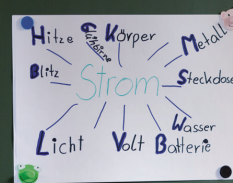 Hitze
Glühbirne
Körper
Metall
Blitz
Strom
Steckdose
Wasser
Licht
Volt
Batterie